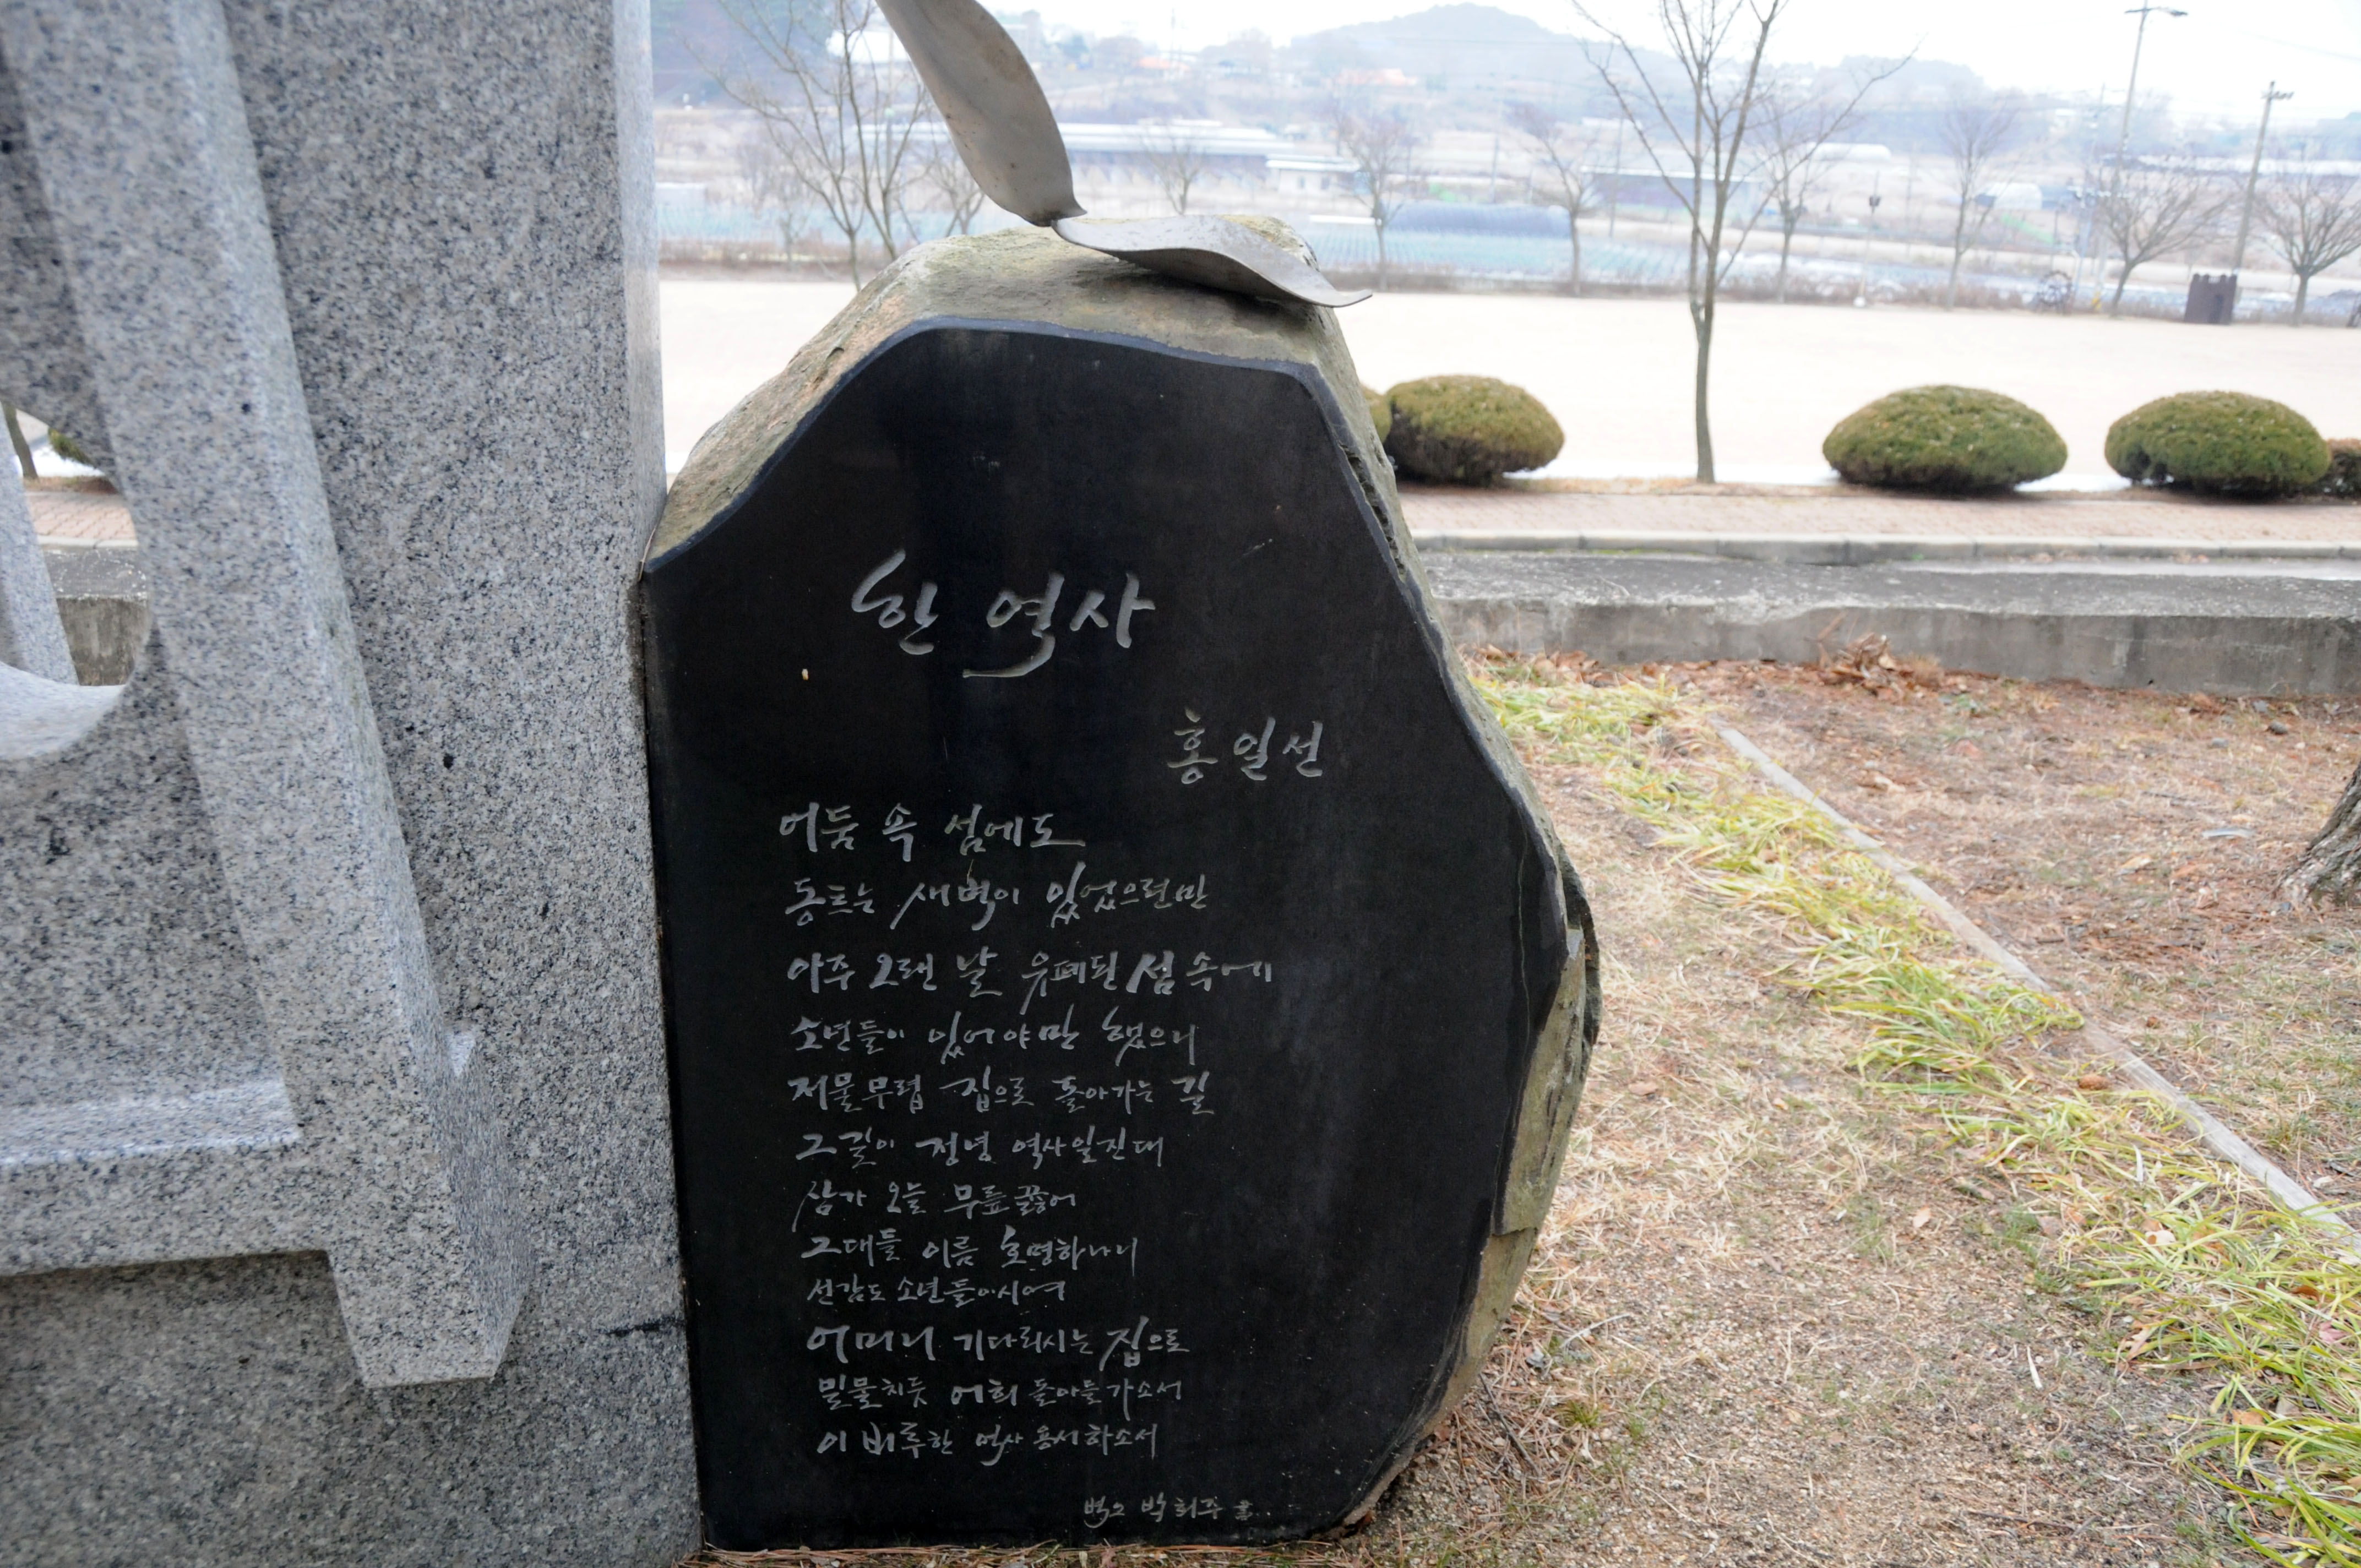 한 역사
홍일선
어둠 속 섬에도
동트는 새벽이 있었으련만
아주 오랜 날 유폐된 섬 속에
소년들이 있어야만 했으니
저물무렵 집으로 돌아가는 길
그 길이 정녕 역사일진대
삼가 오늘 무릎 꿇어
그대들 이름 호명하나니
선감도 소년들이시여
어머니 기다리시는 집으로
밀물치듯 어희 돌아들 가소서
이 비루한 역사 용서하소서
박희주